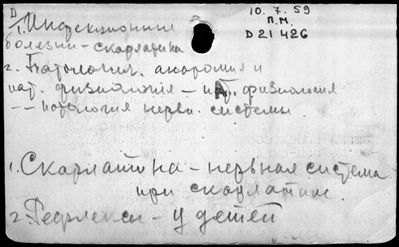 D
10. 7. 59
П.М.
D 21 426
1. Инфекционные
болезни - скарлатина
2. Патология. анатомия и
пат. физиология - пат. физиология
-- патология нервн. системы.
1. Скарлатина - нервная система
при скарлатине.
2. Рефлексы - у детей